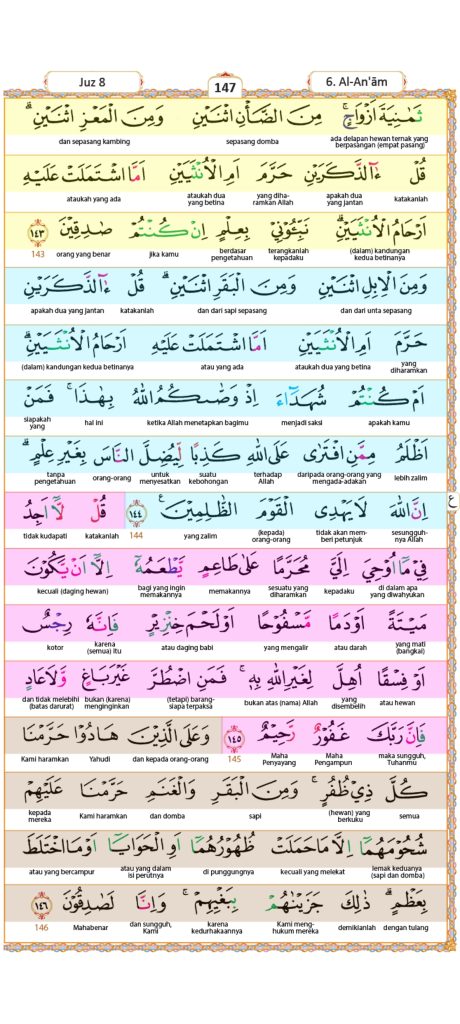 Juz 8 147 6. Al-An'ām
ثَمٰنِيَةَ اَزْوَاجٍۚ مِنَ الضَّأْنِ اثْنَيْنِ وَمِنَ الْمَعْزِ اثْنَيْنِۗ
ada delapan hewan ternak yang berpasangan (empat pasang) sepasang domba dan sepasang kambing
قُلْ ءٰۤالذَّكَرَيْنِ حَرَّمَ اَمِ الْاُنْثَيَيْنِ اَمَّا اشْتَمَلَتْ عَلَيْهِ
katakanlah apakah dua yang jantan yang diharamkan Allah ataukah dua yang betina ataukah yang ada
اَرْحَامُ الْاُنْثَيَيْنِۗ نَبِّئُوْنِيْ بِعِلْمٍ اِنْ كُنْتُمْ صٰدِقِيْنَ ١٤٣
(dalam) kandungan kedua betinanya terangkanlah kepadaku berdasar pengetahuan jika kamu orang yang benar 143
وَمِنَ الْاِبِلِ اثْنَيْنِ وَمِنَ الْبَقَرِ اثْنَيْنِۗ قُلْ ءٰۤالذَّكَرَيْنِ
dan dari unta sepasang dan dari sapi sepasang katakanlah apakah dua yang jantan
حَرَّمَ اَمِ الْاُنْثَيَيْنِ اَمَّا اشْتَمَلَتْ عَلَيْهِ اَرْحَامُ الْاُنْثَيَيْنِۗ
yang diharamkan ataukah dua yang betina atau yang ada (dalam) kandungan kedua betinanya
اَمْ كُنْتُمْ شُهَدَاۤءَ اِذْ وَصّٰىكُمُ اللّٰهُ بِهٰذَاۚ فَمَنْ
apakah kamu menjadi saksi ketika Allah menetapkan bagimu hal ini siapakah yang
اَظْلَمُ مِمَّنِ افْتَرٰى عَلَى اللّٰهِ كَذِبًا لِّيُضِلَّ النَّاسَ بِغَيْرِ عِلْمٍۗ
lebih zalim daripada orang-orang yang mengada-adakan terhadap Allah suatu kebohongan untuk menyesatkan orang-orang tanpa pengetahuan
اِنَّ اللّٰهَ لَا يَهْدِى الْقَوْمَ الظّٰلِمِيْنَ ࣖ ١٤٤ قُلْ لَّآ اَجِدُ
sesungguhnya Allah tidak akan memberi petunjuk (kepada) orang-orang yang zalim 144 katakanlah tidak kudapati
فِيْ مَآ اُوْحِيَ اِلَيَّ مُحَرَّمًا عَلٰى طَاعِمٍ يَّطْعَمُهٗٓ اِلَّآ اَنْ يَّكُوْنَ
di dalam apa yang diwahyukan kepadaku sesuatu yang diharamkan memakannya bagi yang ingin memakannya kecuali (daging hewan)
مَيْتَةً اَوْ دَمًا مَّسْفُوْحًا اَوْ لَحْمَ خِنْزِيْرٍ فَاِنَّهٗ رِجْسٌ
yang mati (bangkai) atau darah yang mengalir atau daging babi karena (semua) itu kotor
اَوْ فِسْقًا اُهِلَّ لِغَيْرِ اللّٰهِ بِهٖۚ فَمَنِ اضْطُرَّ غَيْرَ بَاغٍ وَّلَا عَادٍ
atau hewan yang disembelih bukan atas (nama) Allah (tetapi) barangsiapa terpaksa bukan (karena) menginginkan dan tidak melebihi (batas darurat)
فَاِنَّ رَبَّكَ غَفُوْرٌ رَّحِيْمٌ ١٤٥ وَعَلَى الَّذِيْنَ هَادُوْا حَرَّمْنَا
maka sungguh, Tuhanmu Maha Pengampun Maha Penyayang 145 dan kepada orang-orang Yahudi Kami haramkan
كُلَّ ذِيْ ظُفُرٍۚ وَمِنَ الْبَقَرِ وَالْغَنَمِ حَرَّمْنَا عَلَيْهِمْ
semua (hewan) yang berkuku sapi dan domba Kami haramkan kepada mereka
شُحُوْمَهُمَآ اِلَّا مَا حَمَلَتْ ظُهُوْرُهُمَآ اَوِ الْحَوَايَآ اَوْ مَا اخْتَلَطَ
lemak keduanya (sapi dan domba) kecuali yang melekat di punggungnya atau yang dalam isi perutnya atau yang bercampur
بِعَظْمٍۗ ذٰلِكَ جَزَيْنٰهُمْ بِبَغْيِهِمْۚ وَاِنَّا لَصٰدِقُوْنَ ١٤٦
dengan tulang demikianlah Kami menghukum mereka karena kedurhakaannya dan sungguh, Kami Mahabenar 146
ع